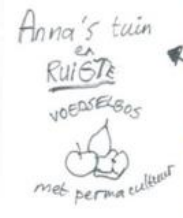 Anna's tuin
en
RUiGTE
VOEDSELBOS
met permacultuur